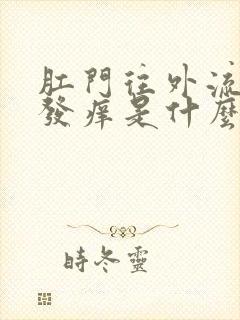 肛門往外流
發癢是什麼
時冬靈